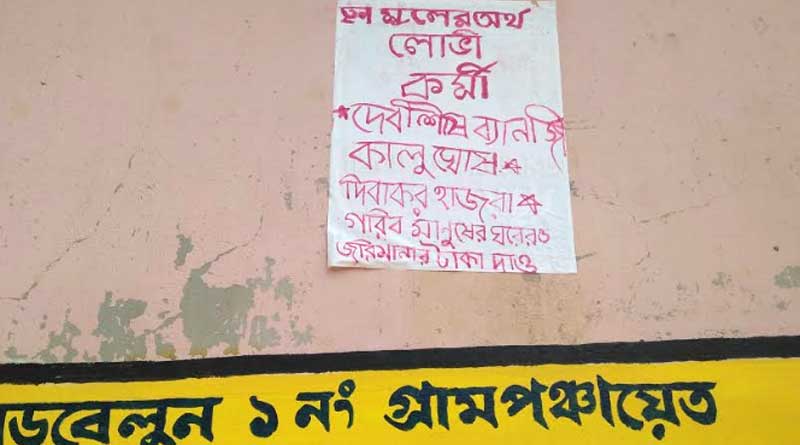 তৃণমূলের অর্থ
লোভী
কর্মী
*দেবাশিষ ব্যানার্জি
কালু ঘোষ*
দিবাকর হাজরা*
গরিব মানুষের ঘরের ও
জরিমানার টাকা দাও
ড়বেলুন ১ নং গ্রামপঞ্চায়েত